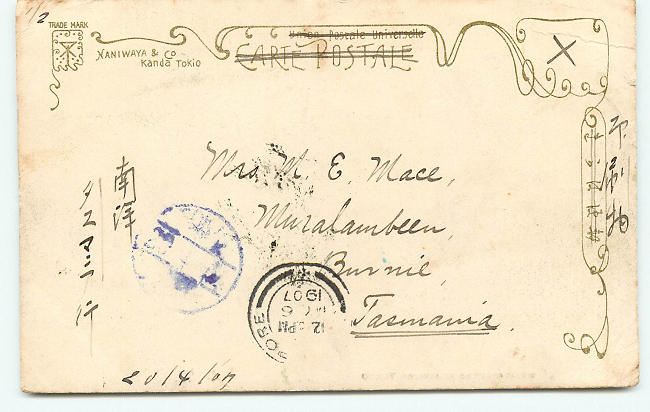 1/2
TRADE MARK
NANIWAYA & CO
KANDA TOKIO
Union Postale Universelle
CARTE POSTALE
X
Mrs. M. E. Mace,
Muralambeen,
Burnie,
Tasmania.
南洋
タスマニア
行
印刷物
12 PM
1907
20/4/07